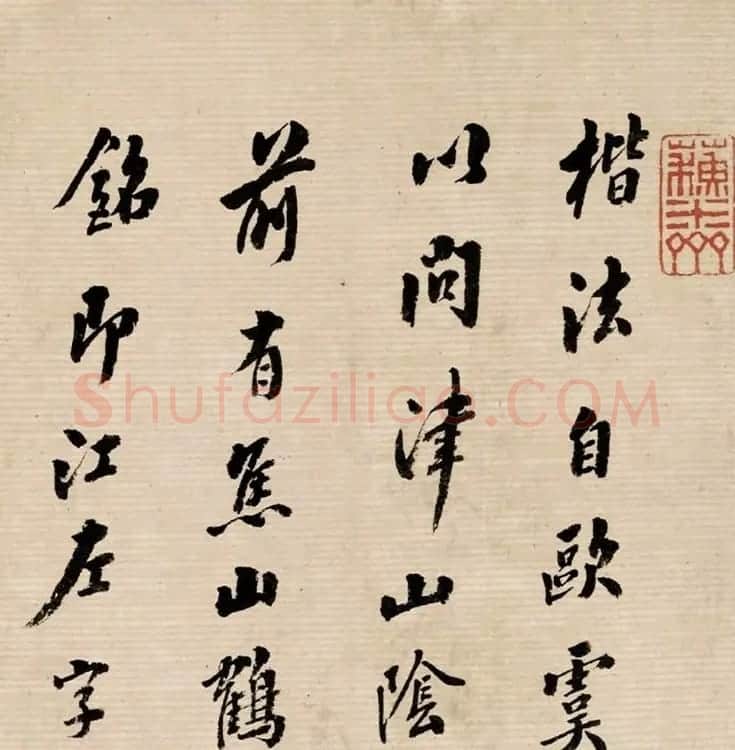 楷法自歐虞
以問津山陰
前有焦山鶴
銘即江左字
Shufaziliao.COM